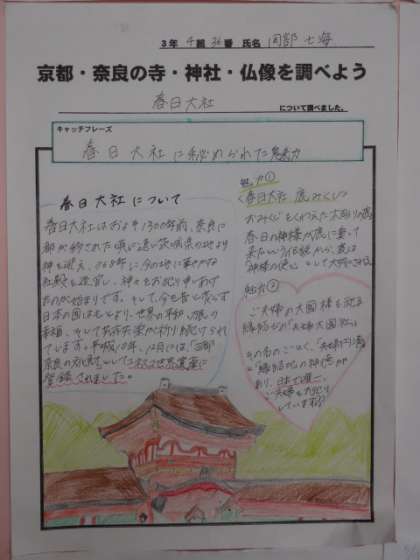 3年 4組 36番 氏名 岡部 七海
京都・奈良の寺・神社・仏像を調べよう
春日大社 について調べました。
キャッチフレーズ
春日大社に秘められた魅力
春日大社について
春日大社はおよそ1300年前、奈良に
都が移された頃に遠い茨城県の地より
神を迎え、768年に今の地に華やかな
社殿を造営し、神々をお祀り申しあげ
たのが始まりです。そして、今も昔も変らず
日本の国はもとより、世界の和し、
幸福、そして共存共栄が祈り続けられ
ています。平成10年、12月には「古都
奈良の文化財」として世界遺産に
登録されました。
魅力①
〈春日大社 鹿みくじ〉
おみくじをくわえた木彫りの鹿
春日の神様が鹿に乗って
来たという伝説から、鹿は
"神様の使い"として大切にされる
魅力②
ご夫婦の大国様を祀る
縁結びの「夫婦大国社」
その名のごとく、「夫婦円満」
「縁結び」の神徳が
あり、日本で唯一、
ご夫婦をお祀り
しています